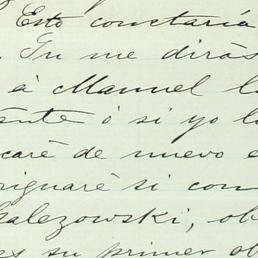 Esto constaría
Tu me dirás
à Manuel l
ente ó si yo l
caré de nuevo e
riguaré si con
alezowski, ob
es su primer ob